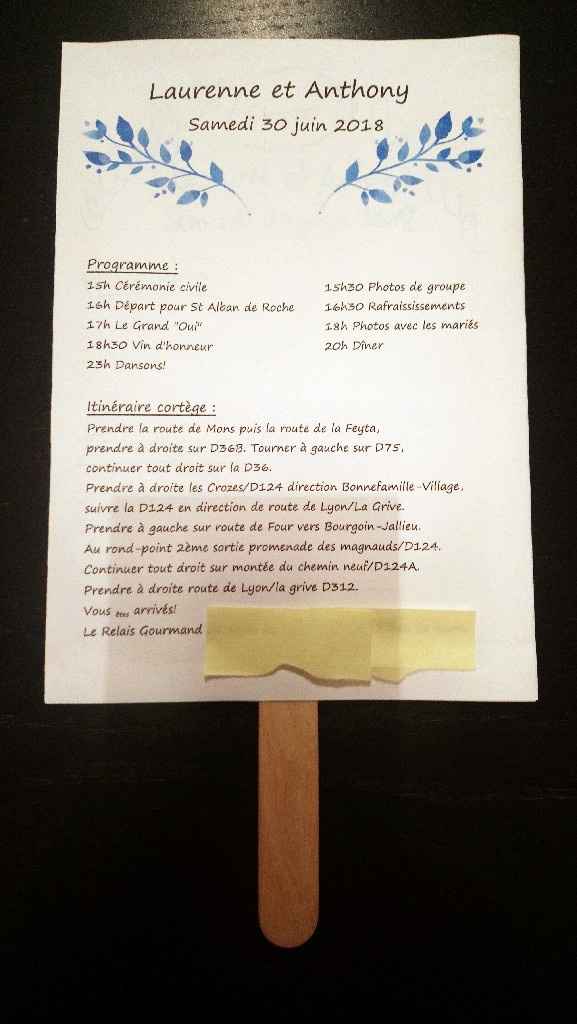 Laurenne et Anthony
Samedi 30 juin 2018
Programme :
15h Cérémonie civile
16h Départ pour St Alban de Roche
17h Le Grand "Oui"
18h30 Vin d'honneur
23h Dansons!
15h30 Photos de groupe
16h30 Rafraississements
18h Photos avec les mariés
20h Dîner
Itinéraire cortège :
Prendre la route de Mons puis la route de la Feyta,
prendre à droite sur D36B. Tourner à gauche sur D75,
continuer tout droit sur la D36.
Prendre à droite les Crozes/D124 direction Bonnefamille-Village,
suivre la D124 en direction de route de Lyon/La Grive.
Prendre à gauche sur route de Four vers Bourgoin-Jallieu.
Au rond-point 2ème sortie promenade des magnauds/D124.
Continuer tout droit sur montée du chemin neuf/D124A.
Prendre à droite route de Lyon/la grive D312.
Vous êtes arrivés!
Le Relais Gourmand